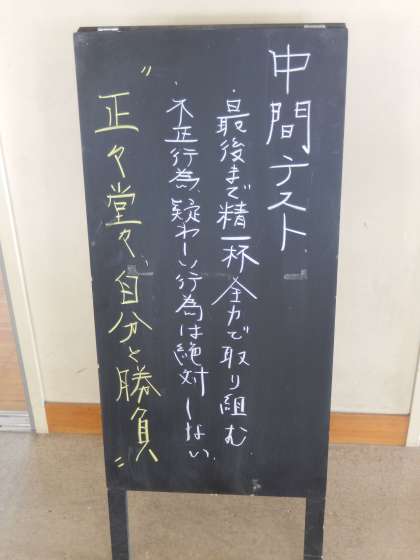 中間テスト
・最後まで精一杯全力で取り組む
・不正行為、疑わしい行為は絶対しない
"正々堂々、自分と勝負"